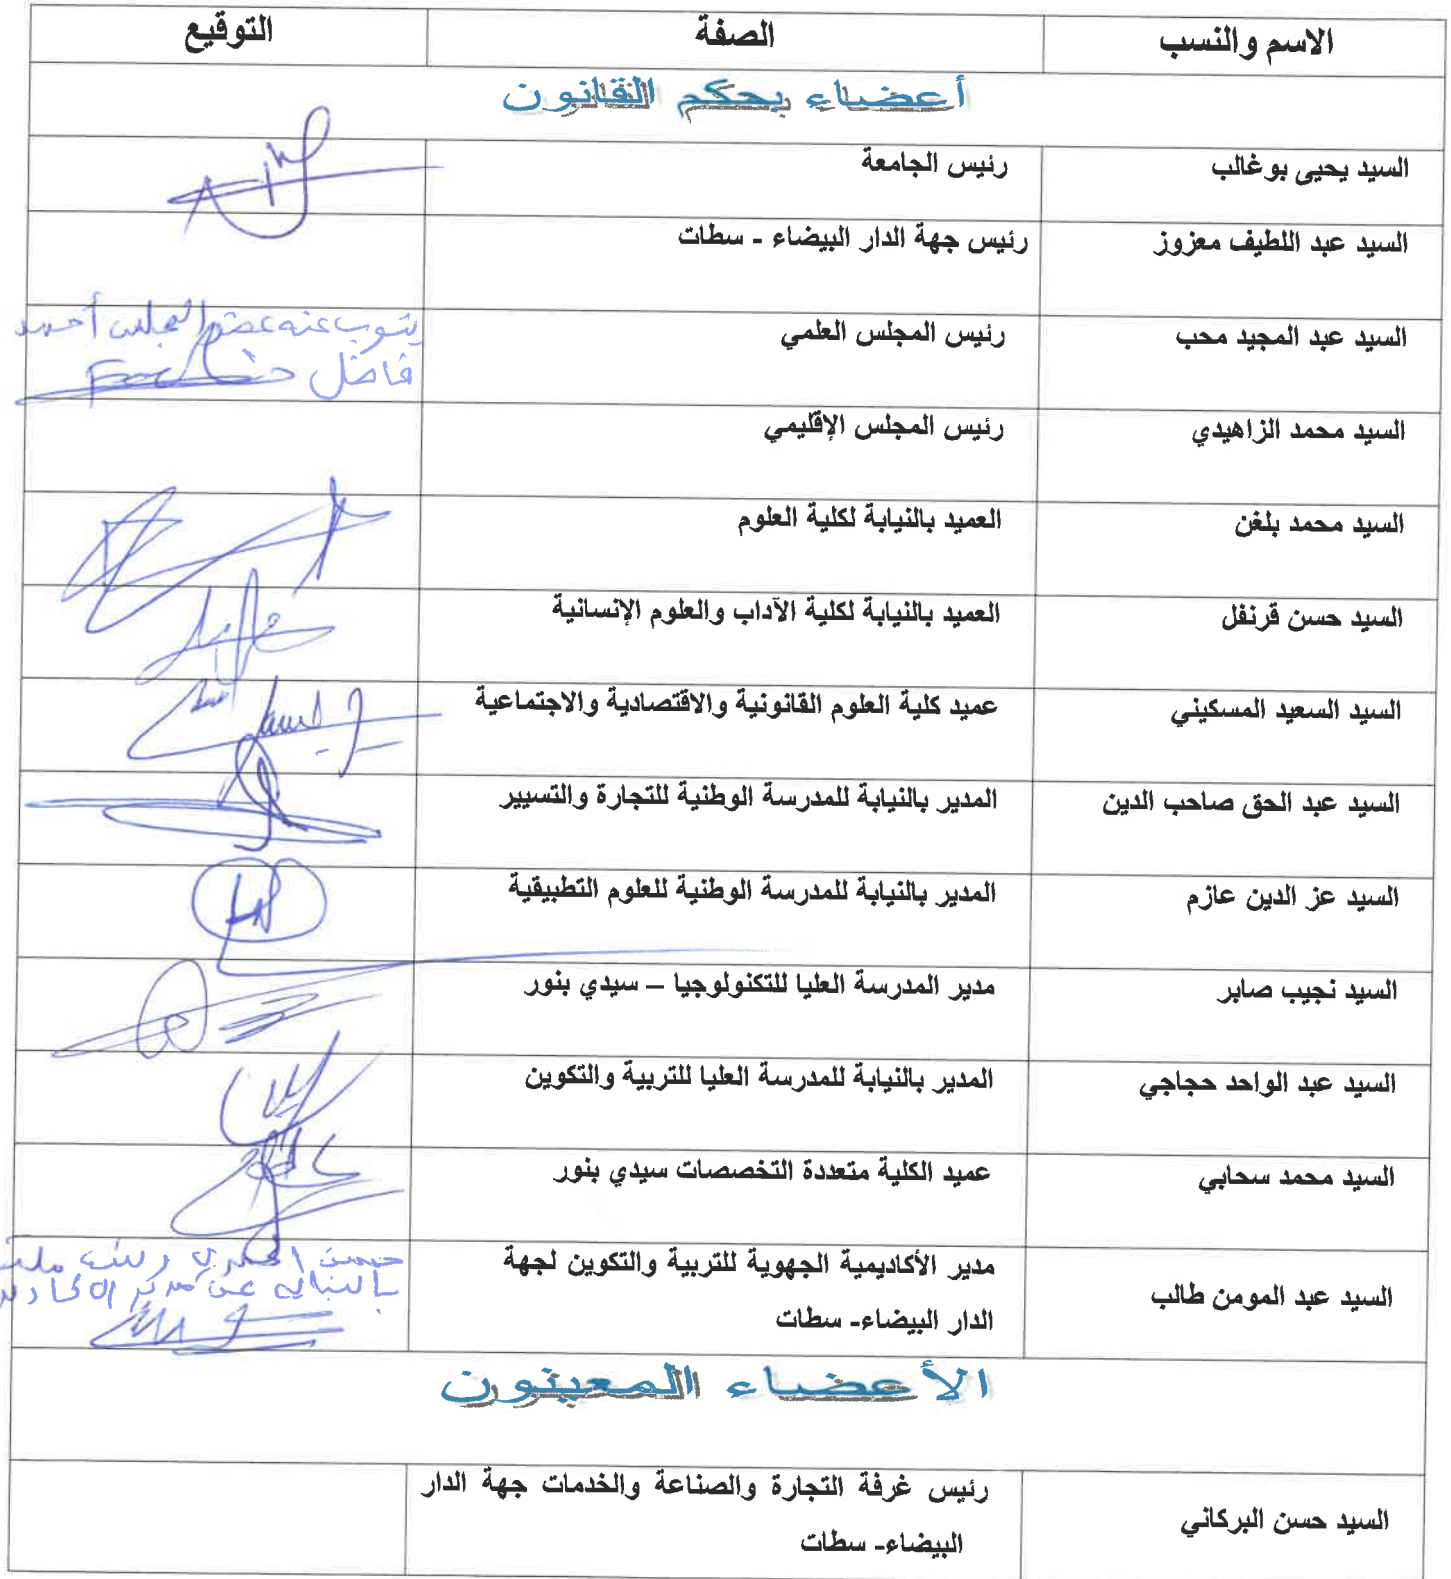 الاسم والنسب الصفة التوقيع
أعضاء بحكم القانون
السيد يحيى بوغالب رئيس الجامعة
السيد عبد اللطيف معزوز رئيس جهة الدار البيضاء - سطات
السيد عبد المجيد محب رئيس المجلس العلمي
ينوب عنه عضو المجلس أحمد
فاضل
السيد محمد الزاهيدي رئيس المجلس الإقليمي
السيد محمد بلغن العميد بالنيابة لكلية العلوم
السيد حسن قرنفل العميد بالنيابة لكلية الآداب والعلوم الإنسانية
السيد السعيد المسكيني عميد كلية العلوم القانونية والاقتصادية والاجتماعية
السيد عبد الحق صاحب الدين المدير بالنيابة للمدرسة الوطنية للتجارة والتسيير
السيد عز الدين عازم المدير بالنيابة للمدرسة الوطنية للعلوم التطبيقية
السيد نجيب صابر مدير المدرسة العليا للتكنولوجيا – سيدي بنور
السيد عبد الواحد حجاجي المدير بالنيابة للمدرسة العليا للتربية والتكوين
السيد محمد سحابي عميد الكلية متعددة التخصصات سيدي بنور
السيد عبد المومن طالب مدير الأكاديمية الجهوية للتربية والتكوين لجهة
الدار البيضاء- سطات
بالنيابة عن مدير
الأعضاء المعينون
السيد حسن البركاني رئيس غرفة التجارة والصناعة والخدمات جهة الدار
البيضاء- سطات